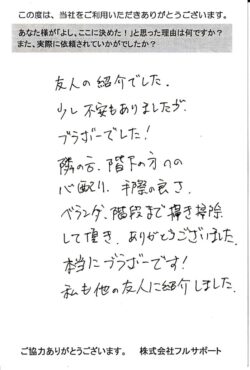 この度は、当社をご利用いただきありがとうございます。
あなた様が「よし、ここに決めた！」と思った理由は何ですか？
また、実際に依頼されていかがでしたか？
友人の紹介でした。
少し不安もありましたが、
ブラボーでした！
隣の方、階下の方への
心配り、手際の良さ、
ベランダ、階段まで掃き掃除
して頂き、ありがとうございました。
本当にブラボーです！
私も他の友人に紹介しました。
ご協力ありがとうございます。　株式会社フルサポート